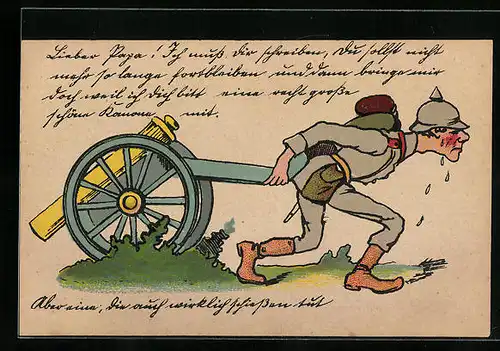 Lieber Papa! Ich muß dir schreiben, Du sollst nicht
mehr so lange fortbleiben und dann bringe mir
doch weil ich Dich bitt eine recht große
schöne Kanone mit.
Aber eine, die auch wirklich schießen tut